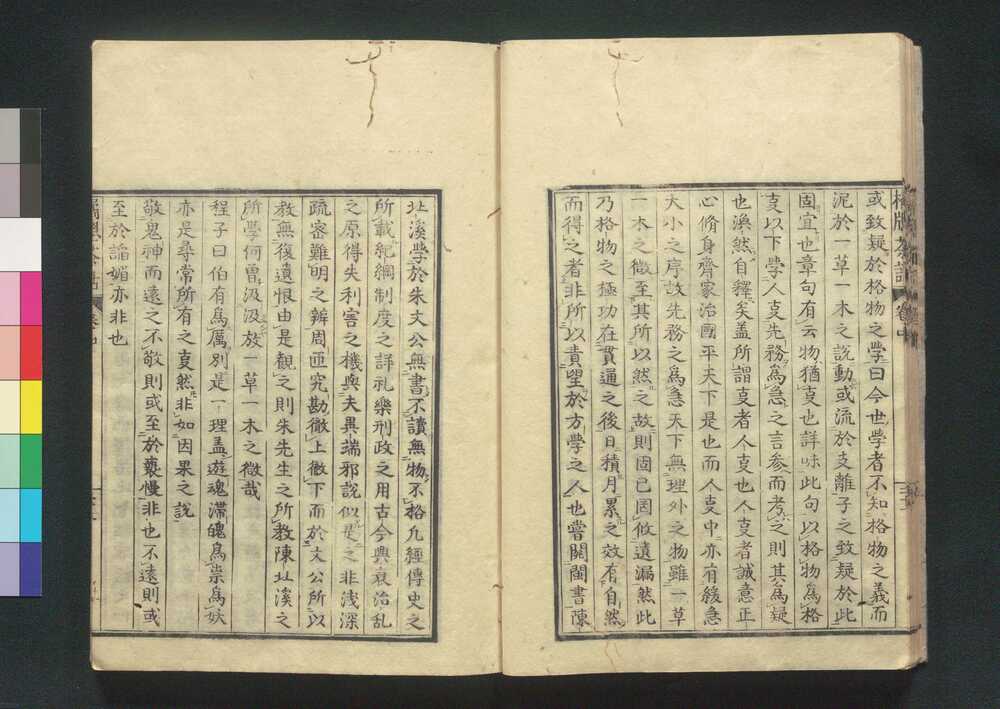 或致疑於格物之學曰今世學者不知格物之義而
泥於一草一木之說動或流於支離子之致疑於此
固宜也章句有云物猶㕝也詳味此句以格物為格
㕝以下學人㕝先務為急之言参而考之則其為疑
也渙然自釋矣盖所謂㕝者人㕝也人㕝者誠意正
心脩身齊家治國平天下是也而人㕝中亦有緩急
大小之序故先務之為急天下無理外之物雖一草
一木之微至其所以然之故則固已罔攸遺漏然此
乃格物之極功在貫通之後日積月累之效有自然
而得之者非所以責望於方學之人也嘗閱閩書陳
北溪學於朱文公無書不讀無物不格凢經傳史之
所載紀綱制度之詳礼樂刑政之用古今興衰治乱
之原得失利害之機與夫異端邪說似是之非浅深
疏密難明之辨周匝究勘徹上徹下而於文公所以
教無復遺恨由是觀之則朱先生之所教陳北溪之
所學何曽汲汲放一草一木之微哉
程子曰伯有為厲別是一理盖遊魂滯魄為祟為妖
亦是尋常所有之㕝然非如因果之說
敬鬼神而遠之不敬則或至於褻慢非也不遠則或
至於諂媚亦非也